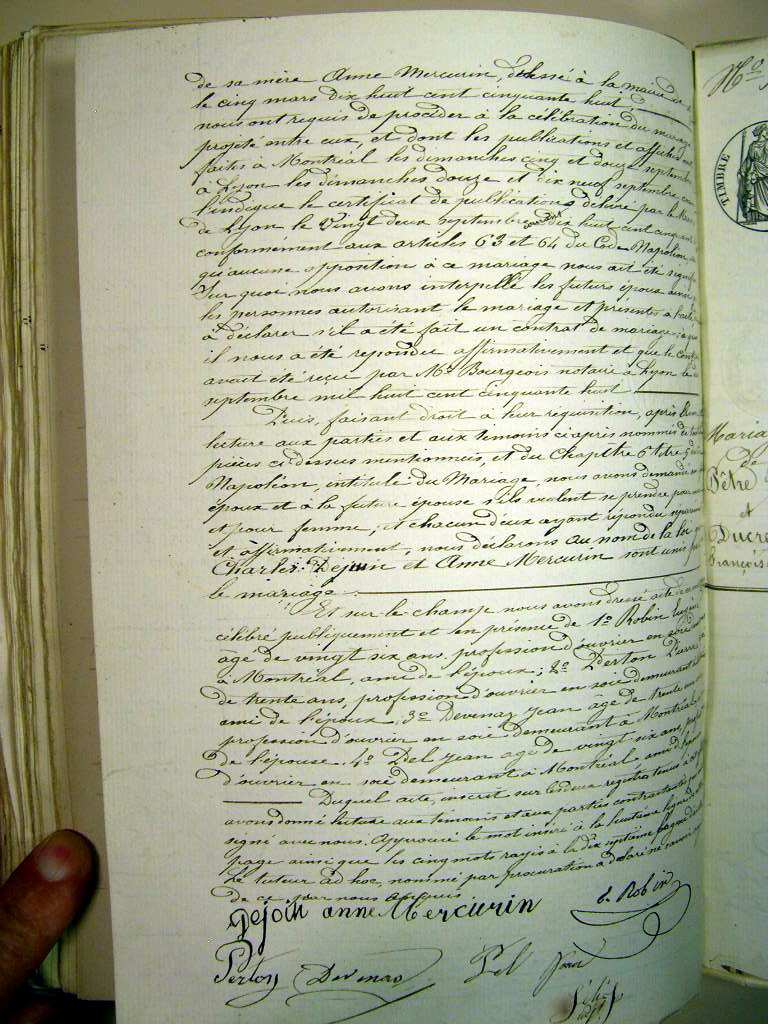 de sa mère Anne Mercurin, délivré à la mairie de
le cinq mars dix huit cent cinquante huit
nous ont requis de procéder à la célébration du mariage
projeté entre eux, et dont les publications et affiches ont
faites à Montréal les dimanches cinq et douze septembre
à Lyon les dimanches douze et dix neuf septembre, comme
l'indique le certificat de publications délivré par le Maire
de Lyon le vingt deux septembre dix huit cent cinquante
conformément aux articles 63 et 64 du Code Napoléon,
qu'aucune opposition à ce mariage nous ait été signifiée
Sur quoi nous avons interpellé les futurs époux ainsi
les personnes autorisant le mariage et présents à
à déclarer s'il a été fait un contrat de mariage; à quoi
il nous a été répondu affirmativement et que le contrat
avait été reçu par Me Bourgeois notaire à Lyon le
septembre mil huit cent cinquante huit
Puis, faisant droit à leur réquisition, après
lecture aux parties et aux témoins ci après nommés de
pièces ci dessus mentionnées, et du Chapitre 6 titre 5 du
Napoléon, intitulé du Mariage, nous avons demandé au
époux et à la future épouse s'ils veulent se prendre pour
et pour femme, et chacun d'eux ayant répondu séparément
et affirmativement, nous déclarons au nom de la loi que
Charles Dejoin et Anne Mercurin sont unis par
le mariage.
Et sur le champ nous avons dressé acte
célébré publiquement et en présence de 1o Robin
âgé de vingt six ans, profession d'ouvrier en soie
à Montréal, ami de l'époux; 2o Perton Pierre
de trente ans, profession d'ouvrier en soie demeurant
ami de l'époux, 3o Devenaz Jean âgé de trente
profession d'ouvrier en soie demeurant à Montréal
de l'épouse. 4o Pel Jean âgé de vingt six ans,
d'ouvrier en soie demeurant à Montréal ami de l'époux
Duquel acte, inscrit sur les deux registres tenus à
avons donné lecture aux témoins et aux parties contractantes qui
signé avec nous. Approuvé le mot inséré à la huitième ligne de
page ainsi que les cinq mots rayés à la dix septième
Le tuteur ad hoc, nommé par procuration a déclaré ne savoir
de ce par nous requis
Dejoin anne Mercurin
Robin
Perton
Pel
TIMBRE
No
Maria
de
Pêtre
et
Ducre
françois